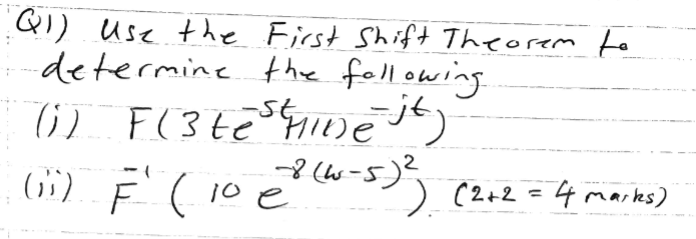 Q1) Use the First Shift Theorem to
determine the following
(i) F(3te^-5t H(t)e^-jt)
(ii) F^-1 (10 e^-8(w-5)^2) (2+2 = 4 marks)